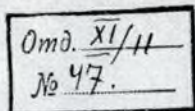 Отд. XI/11
№ 47.